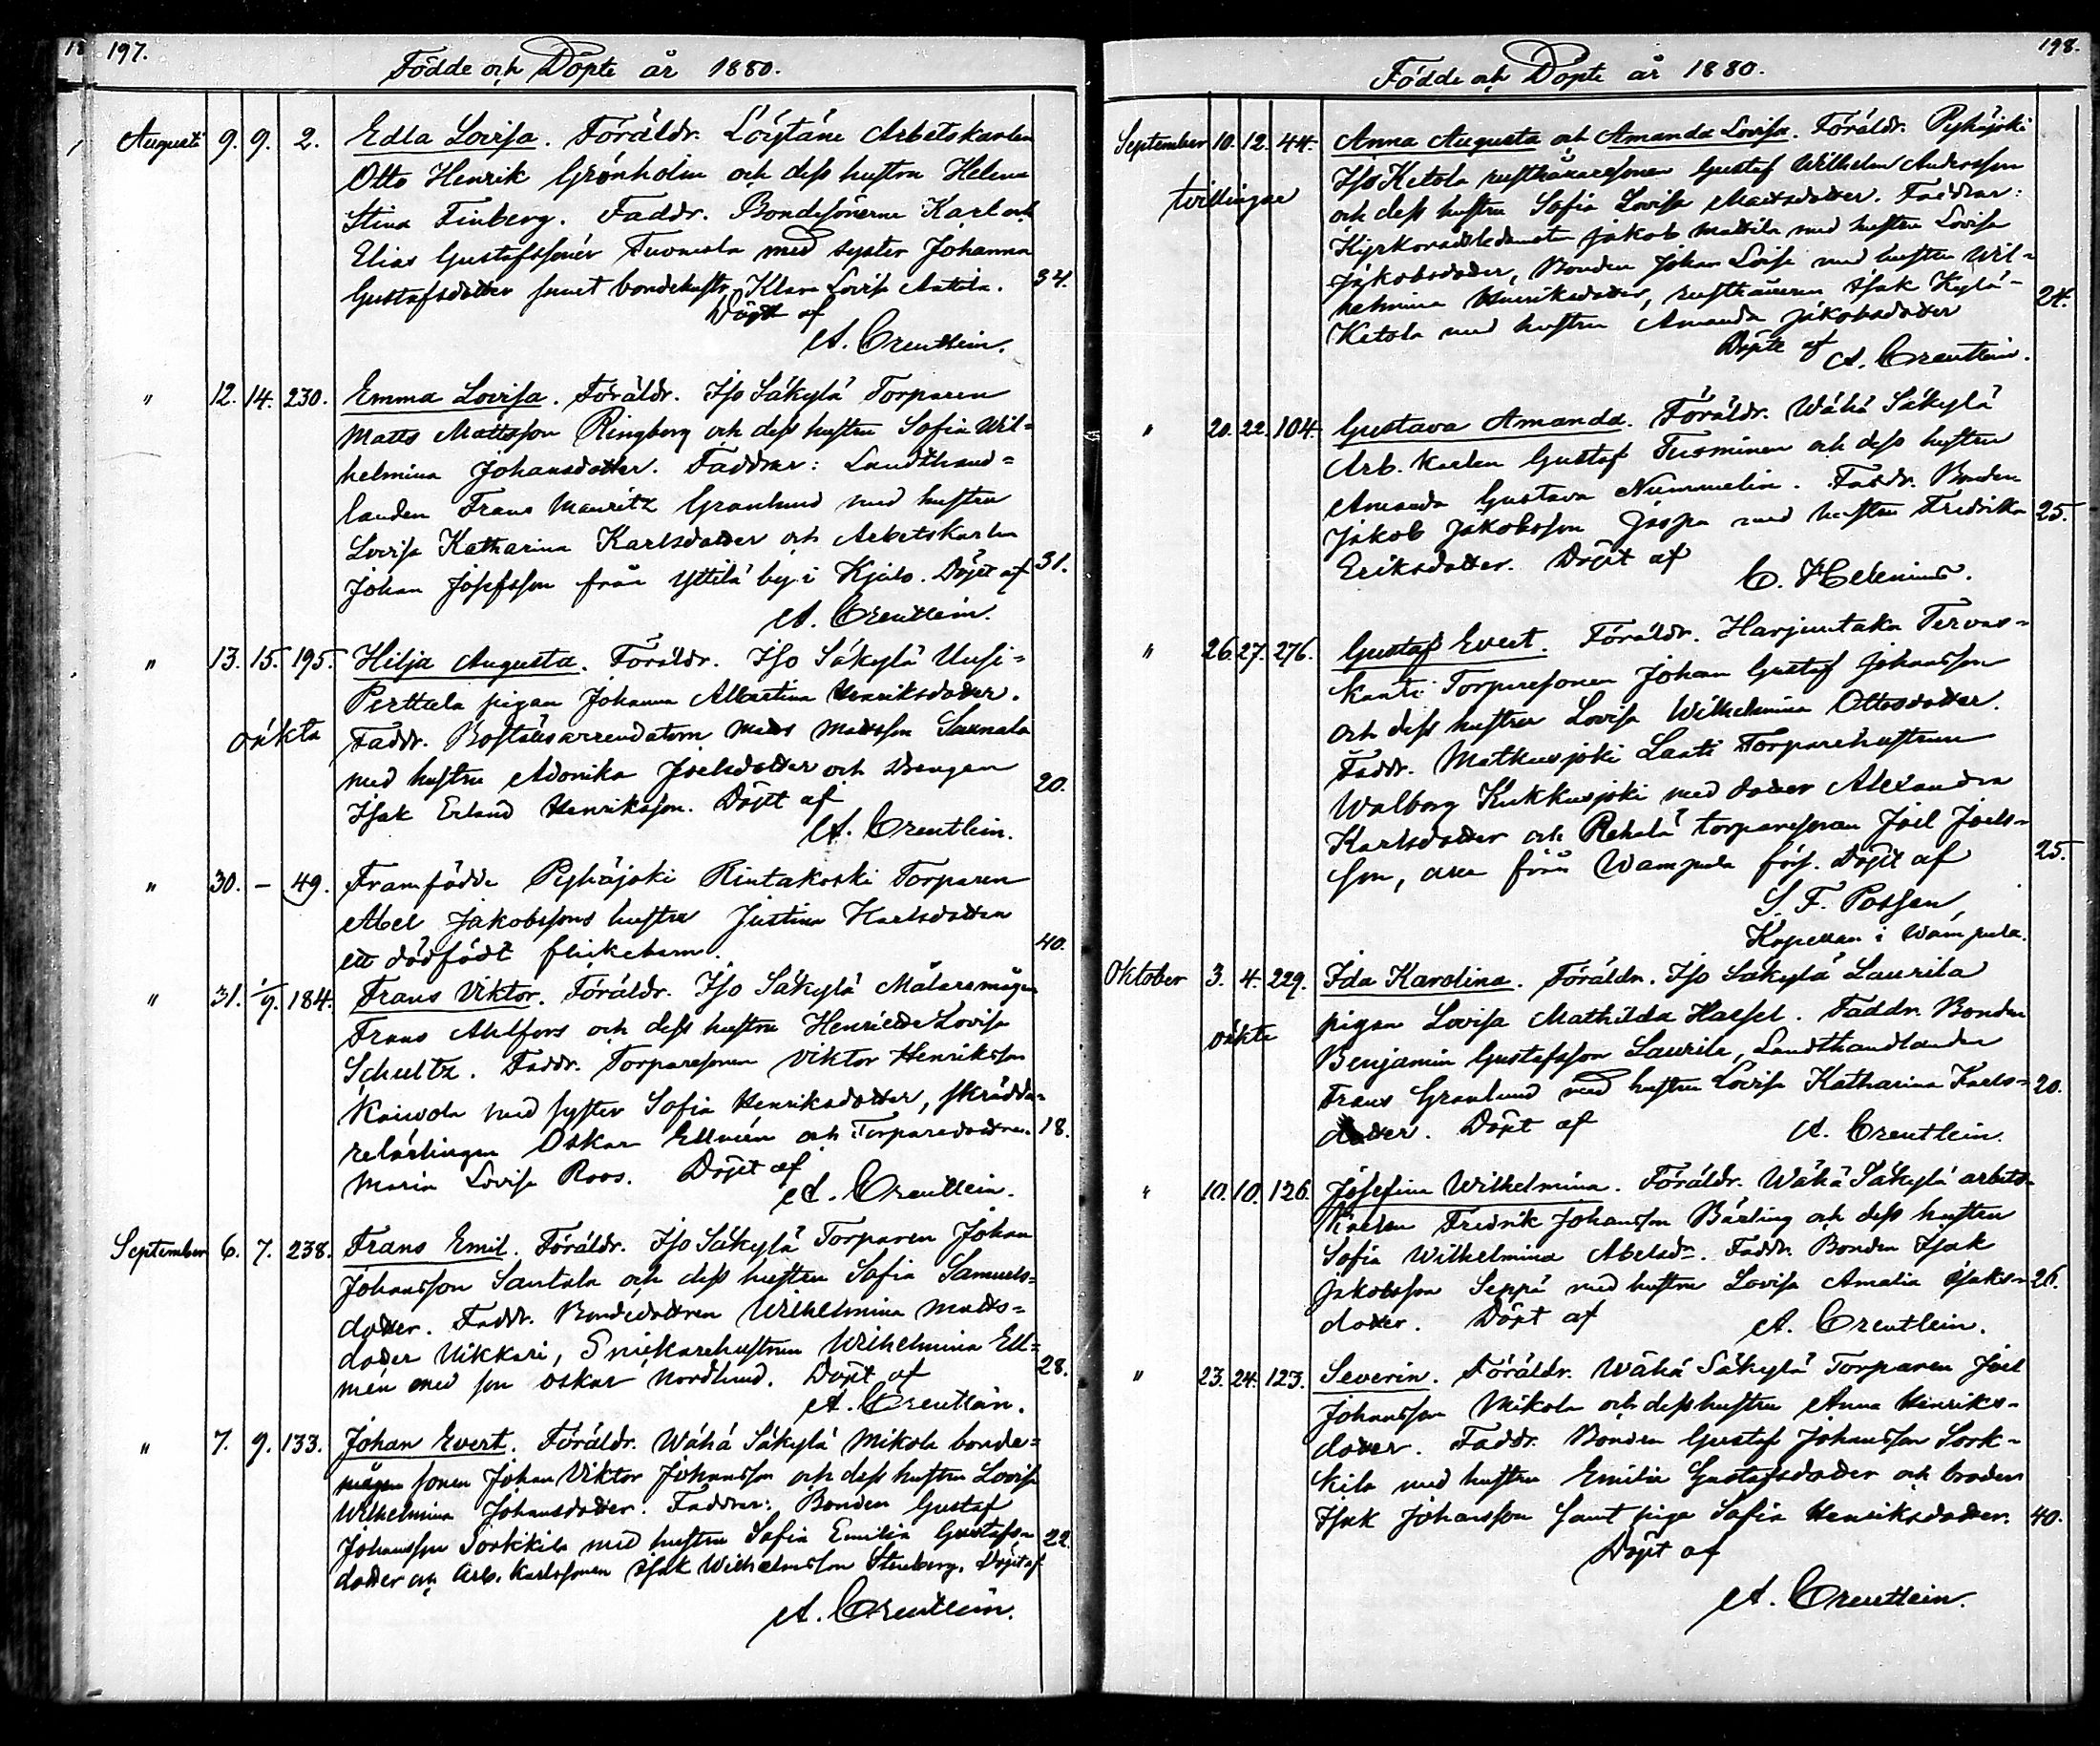 197.
Födde och Döpte år 1880.
Augusti 9. 9. 2. Edla Lovisa. Föräldr. Löytäne Arbetskarlen
Otto Henrik Grönholm och dess hustru Helena
Stina Finberg. Faddr. Bondesönerne Karl och
Elias Gustafssöner Tuomola med syster Johanna
Gustafsdotter samt bondehustr. Klara Lovisa Anttila. 34.
Döpt af
A. Creutlein.
" 12. 14. 230. Emma Lovisa. Föräldr. Iso Säkylä Torparen
Matts Mattsson Ringborg och dess hustru Sofia Wil=
helmina Johansdotter. Faddrar: Landthand=
landen Frans Mauritz Granlund med hustru
Lovisa Katharina Karlsdotter och Arbetskarlen
Johan Josefsson från Yttilä by i Kjulo. Döpt af 31.
A. Creutlein.
" 13. 15. 195. Hilja Augusta. Föräldr. Iso Säkylä Uusi=
Perttula pigan Johanna Albertina Henriksdotter.
oäkta Faddr. Boställsarrendatorn Matts Mattsson Saunala
med hustru Adonika Joelsdotter och drengen
Isak Erland Henriksson. Döpt af 20.
A. Creutlein.
" 30. – 49. Framfödde Pyhäjoki Rintakoski Torparen
Abel Jakobssons hustru Justina Karlsdotter
ett dödfödt flickebarn. 40.
" 31. 1/9. 184. Frans Viktor. Föräldr. Iso Säkylä Målaremågen
Frans Ahlfors och dess hustru Henrietta Lovisa
Schultz. Faddr. Torparesonen Viktor Henriksson
Kaivola med syster Sofia Henriksdotter, skrädda=
relärlingen Oskar Ellmén och Torparedottren 18.
Maria Lovisa Roos. Döpt af
A. Creutlein.
September 6. 7. 238. Frans Emil. Föräldr. Iso Säkylä Torparen Johan
Johansson Santala och dess hustru Sofia Samuels=
dotter. Faddr. Bondedottren Wilhelmina Matts=
dotter Uikkari, Snickarehustrun Wilhelmina Ell=
mén med son Oskar Nordlund. Döpt af 28.
A. Creutlein.
" 7. 9. 133. Johan Evert. Föräldr. Wähä Säkylä Mikola bonde=
mågen sonen Johan Viktor Johansson och dess hustru Lovisa
Wilhelmina Johansdotter. Faddrar: Bonden Gustaf
Johansson Sorkkila med hustru Sofia Emilia Gustafs= 22.
dotter och Arb. karlssonen Isak Wilhelmsson Stenberg. Döpt af
A. Creutlein.
198.
Födde och Döpte år 1880.
September 10. 12. 44. Anna Augusta och Amanda Lovisa. Föräldr. Pyhäjoki
Iso Ketola rusthållaresonen Gustaf Wilhelm Andersson
tvillingar och dess hustru Sofia Lovisa Mattsdotter. Faddrar:
Kyrkorådsledamoten Jakob Mattila med hustru Lovisa
Jakobsdotter, Bonden Johan Loisa med hustru Wil=
helmina Henriksdotter, rusthållaren Isak Kylä= 24.
Ketola med hustru Amanda Jakobsdotter
Döpte af A. Creutlein.
" 20. 22. 104. Gustava Amanda. Föräldr. Wähä Säkylä
Arb. karlen Gustaf Tuominen och dess hustru
Amanda Gustava Nummelin. Faddr. Bonden
Jakob Jakobsson Jaspa med hustru Fredrika 25.
Eriksdotter. Döpt af
C. Helenius.
" 26. 27. 276. Gustaf Evert. Föräldr. Harjuntaka Tervas=
kanti Torparesonen Johan Gustaf Johansson
och dess hustru Lovisa Wilhelmina Ottosdotter.
Faddr. Matkusjoki Laati Torparehustrun
Walborg Kukkusjoki med dotter Alexandra
Karlsdotter och Rehalä torparesonen Joel Joels=
son, från Wampula förs. Döpt af 25.
S. F. Possen,
Kapellan i Wampula.
Oktober 3. 4. 229. Ida Karolina. Föräldr. Iso Säkylä Laurila
oäkta pigan Lovisa Mathilda Hassel. Faddr. Bonden
Benjamin Gustafsson Laurila, Landthandlanden
Frans Granlund med hustru Lovisa Katharina Karls= 20.
dotter. Döpt af
A. Creutlein.
" 10. 10. 126. Josefina Wilhelmina. Föräldr. Wähä Säkylä arbets=
karlen Fredrik Johansson Bärling och dess hustru
Sofia Wilhelmina Abelsdr. Faddr. Bonden Isak
Jakobsson Seppä med hustru Lovisa Amalia Isaks= 26.
dotter. Döpt af
A. Creutlein.
" 23. 24. 123. Severin. Föräldr. Wähä Säkylä Torparen Joel
Johansson Mikola och dess hustru Anna Henriks=
dotter. Faddr. Bonden Gustaf Johansson Sork=
kila med hustru Emilia Gustafsdotter och brodern
Isak Johansson samt piga Sofia Henriksdotter. 40.
Döpt af
A. Creutlein.